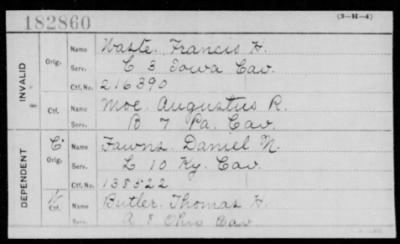 182860
(3-H-4)
INVALID
Orig. Name Waste, Francis H.
Serv. C 3 Iowa Cav.
Ctf. No. 216390
Ctf. Name Moe, Augustus R.
B 7 Pa. Cav.
DEPENDENT
C. Orig. Name Fawns, Daniel N.
Serv. L 10 Ky. Cav.
Ctf. No. 138522
Ctf. Name Butler, Thomas H.
Serv. 8 Ohio Cav